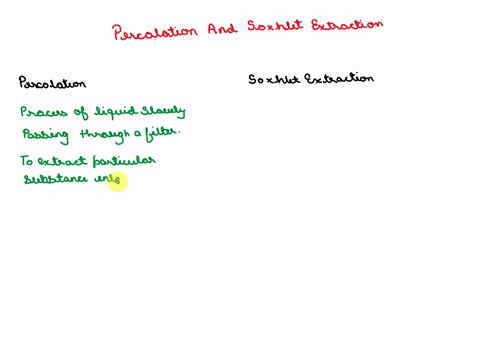 Percolation And Soxhlet Extraction
Percolation
Soxhlet Extraction
Process of liquid slowly
Passing through a filter.
To extract particular
substance